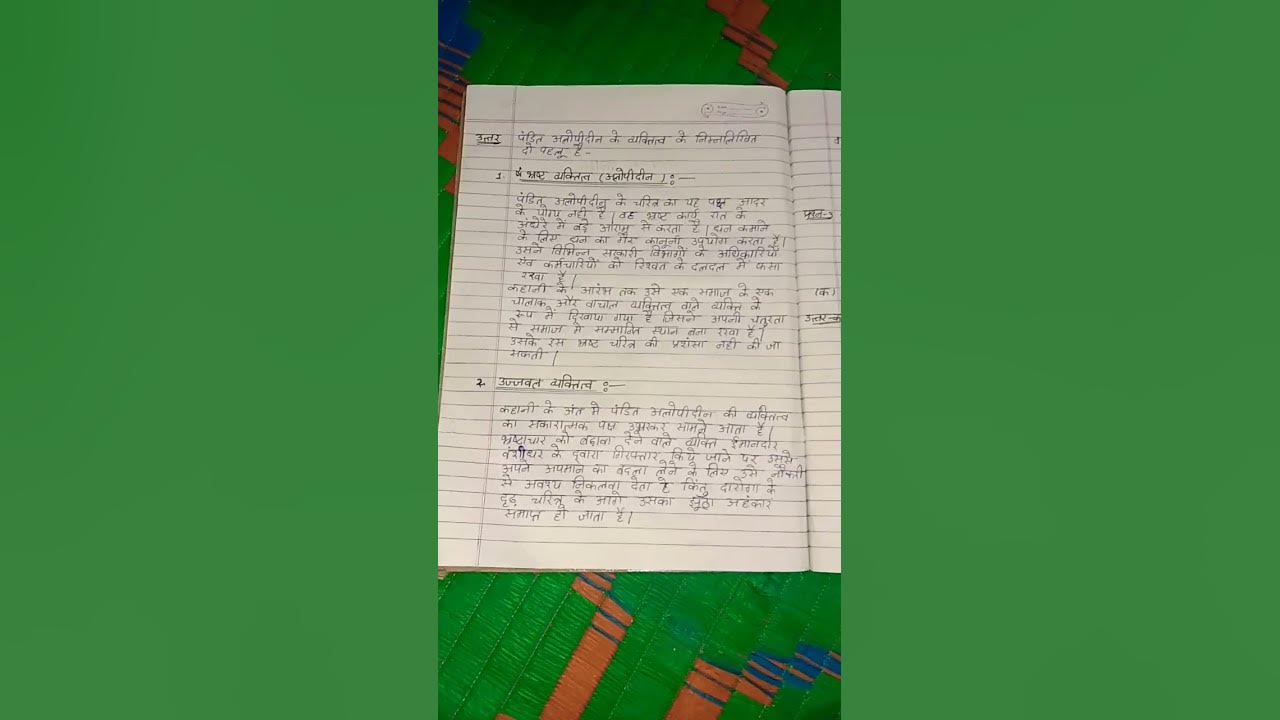 उत्तर पंडित अलोपीदीन के व्यक्तित्व के निम्नलिखित
दो पहलू है -
1. भ्रष्ट व्यक्तित्व (अलोपीदीन) :—
पंडित अलोपीदीन के चरित्र का यह पक्ष आदर
के योग्य नहीं है। वह भ्रष्ट कार्य रात के
अंधेरे में बड़े आराम से करता है। धन कमाने
के लिए धन का गैर कानूनी उपयोग करता है।
उसने विभिन्न सरकारी विभागों के अधिकारियों
एंव कर्मचारियों को रिश्वत के दलदल में फसा
रखा है।
कहानी के आरंभ तक उसे एक समाज के एक
चालाक और वाचाल व्यक्तित्व वाले व्यक्ति के
रूप में दिखाया गया है जिसने अपनी चतुरता
से समाज मे सम्मानित स्थान बना रखा है।
उसके इस भ्रष्ट चरित्र की प्रशंसा नही की जा
सकती।
2. उज्जवल व्यक्तित्व :—
कहानी के अंत मे पंडित अलोपीदीन की व्यक्तित्व
का सकारात्मक पक्ष उभरकर सामने आता है।
भ्रष्टाचार को बढावा देने वाले व्यक्ति ईमानदार
वंशीधर के द्वारा गिरफ्तार किये जाने पर उससे
अपने अपमान का बदला लेने के लिए उसे नौकरी
से अवश्य निकलवा देता है किंतु दारोगा के
दृढ़ चरित्र के आगे उसका झुठा अहंकार
समाप्त हो जाता है।
प्रश्न-3
(क)
उत्तर-क